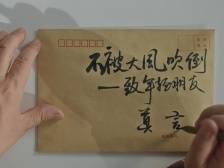 不被大风吹倒
一致年轻朋友
莫言